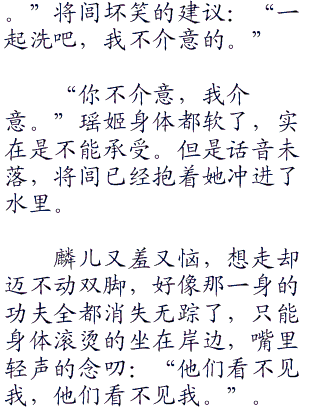 。”将闾坏笑的建议：“一
起洗吧，我不介意的。”
“你不介意，我介
意。”瑶姬身体都软了，实
在是不能承受。但是话音未
落，将闾已经抱着她冲进了
水里。
麟儿又羞又恼，想走却
迈不动双脚，好像那一身的
功夫全都消失无踪了，只能
身体滚烫的坐在岸边，嘴里
轻声的念叨：“他们看不见
我，他们看不见我。”。